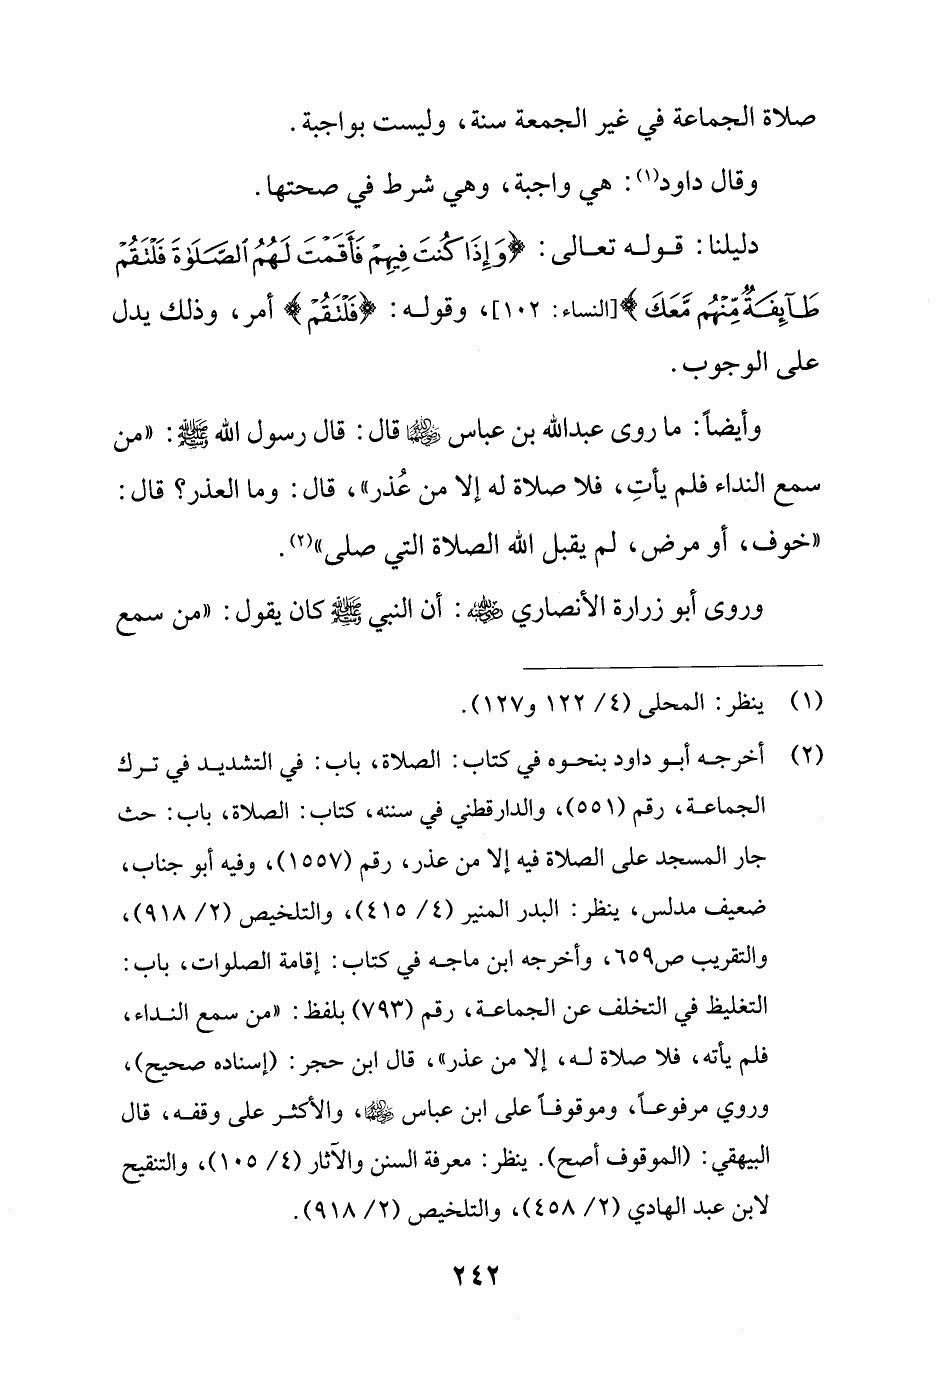 صلاة الجماعة في غير الجمعة سنة، وليست بواجبة.
وقال داود(١): هي واجبة، وهي شرط في صحتها.
دليلنا: قوله تعالى: ﴿وَإِذَا كُنتَ فِيهِمْ فَأَقَمْتَ لَهُمُ ٱلصَّلَوٰةَ فَلْتَقُمْ
طَآئِفَةٌ مِّنْهُم مَّعَكَ﴾ [النساء: ١٠٢]، وقوله: ﴿فَلْتَقُمْ﴾ أمر، وذلك يدل
على الوجوب.
وأيضاً: ما روى عبدالله بن عباس رضي الله عنهما قال: قال رسول الله ﷺ: «من
سمع النداء فلم يأتِ، فلا صلاة له إلا من عُذر»، قال: وما العذر؟ قال:
«خوف، أو مرض، لم يقبل الله الصلاة التي صلى»(٢).
وروى أبو زرارة الأنصاري رضي الله عنه: أن النبي ﷺ كان يقول: «من سمع
(١) ينظر: المحلى (٤/ ١٢٢ و١٢٧).
(٢) أخرجه أبو داود بنحوه في كتاب: الصلاة، باب: في التشديد في ترك
الجماعة، رقم (٥٥١)، والدارقطني في سننه، كتاب: الصلاة، باب: حث
جار المسجد على الصلاة فيه إلا من عذر، رقم (١٥٥٧)، وفيه أبو جناب،
ضعيف مدلس، ينظر: البدر المنير (٤/ ٤١٥)، والتلخيص (٢/ ٩١٨)،
والتقريب ص٦٥٩، وأخرجه ابن ماجه في كتاب: إقامة الصلوات، باب:
التغليظ في التخلف عن الجماعة، رقم (٧٩٣) بلفظ: «من سمع النداء،
فلم يأته، فلا صلاة له، إلا من عذر»، قال ابن حجر: (إسناده صحيح)،
وروي مرفوعاً، وموقوفاً على ابن عباس رضي الله عنهما، والأكثر على وقفه، قال
البيهقي: (الموقوف أصح). ينظر: معرفة السنن والآثار (٤/ ١٠٥)، والتنقيح
لابن عبد الهادي (٢/ ٤٥٨)، والتلخيص (٢/ ٩١٨).
٢٤٢